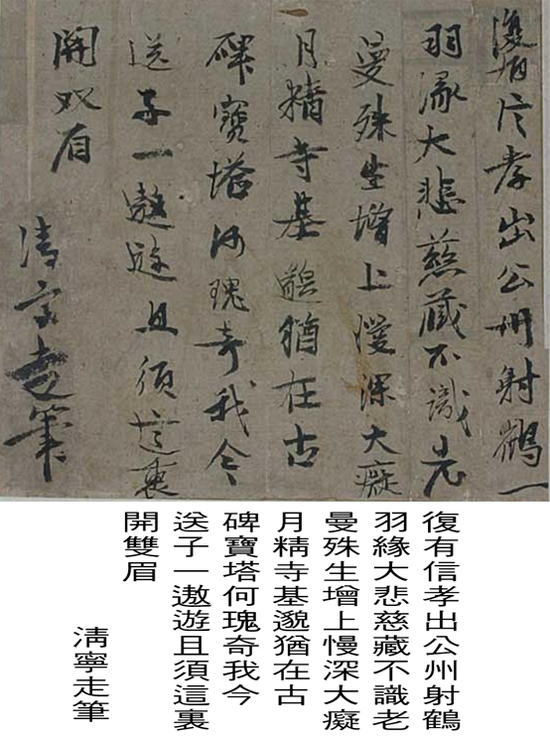 復有信孝出公州射鶴一
羽緣大悲慈藏不識老
曼殊生增上慢深大癡
月精寺基邈猶在古
碑寶塔何瑰奇我今
送子一遨遊且須這裏
開双眉
清寧走筆
復有信孝出公州射鶴
羽緣大悲慈藏不識老
曼殊生增上慢深大癡
月精寺基邈猶在古
碑寶塔何瑰奇我今
送子一遨遊且須這裏
開雙眉
淸寧走筆